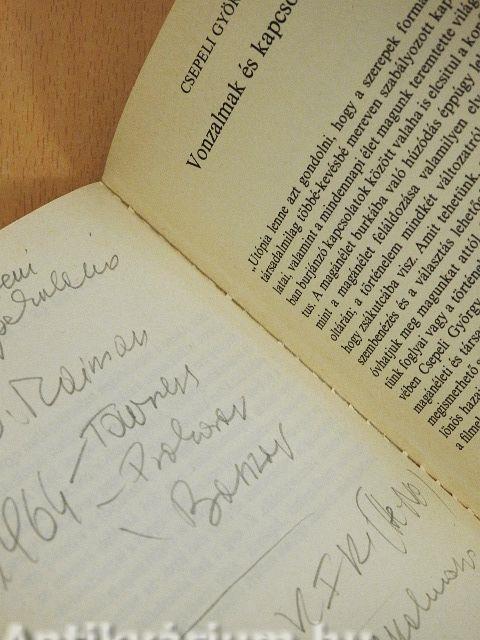 CSEPELI GYÖR
Vonzalmak és kapcso
„Utópia lenne azt gondolni, hogy a szerepek formá
társadalmilag többé-kevésbé mereven szabályozott kap
latai, valamint a mindennapi élet magunk teremtette világ
ban burjánzó kapcsolatok között valaha is elcsitul a konf
tus. A magánélet burkába való húzódás éppúgy leh
mint a magánélet feláldozása valamilyen elv
oltárán; a történelem mindkét változatról
hogy zsákutcába visz. Amit tehetünk,
szembenézés és a választás lehető
óvhatjuk meg magunkat attól
tünk foglyai vagy a történe
vében Csepeli György
magánéleti és társa
megismerhető
lönös hazai
a filmel
Maiman
1964 - Townes
- Prohorov
\ Baszov
Antikvárium.hu